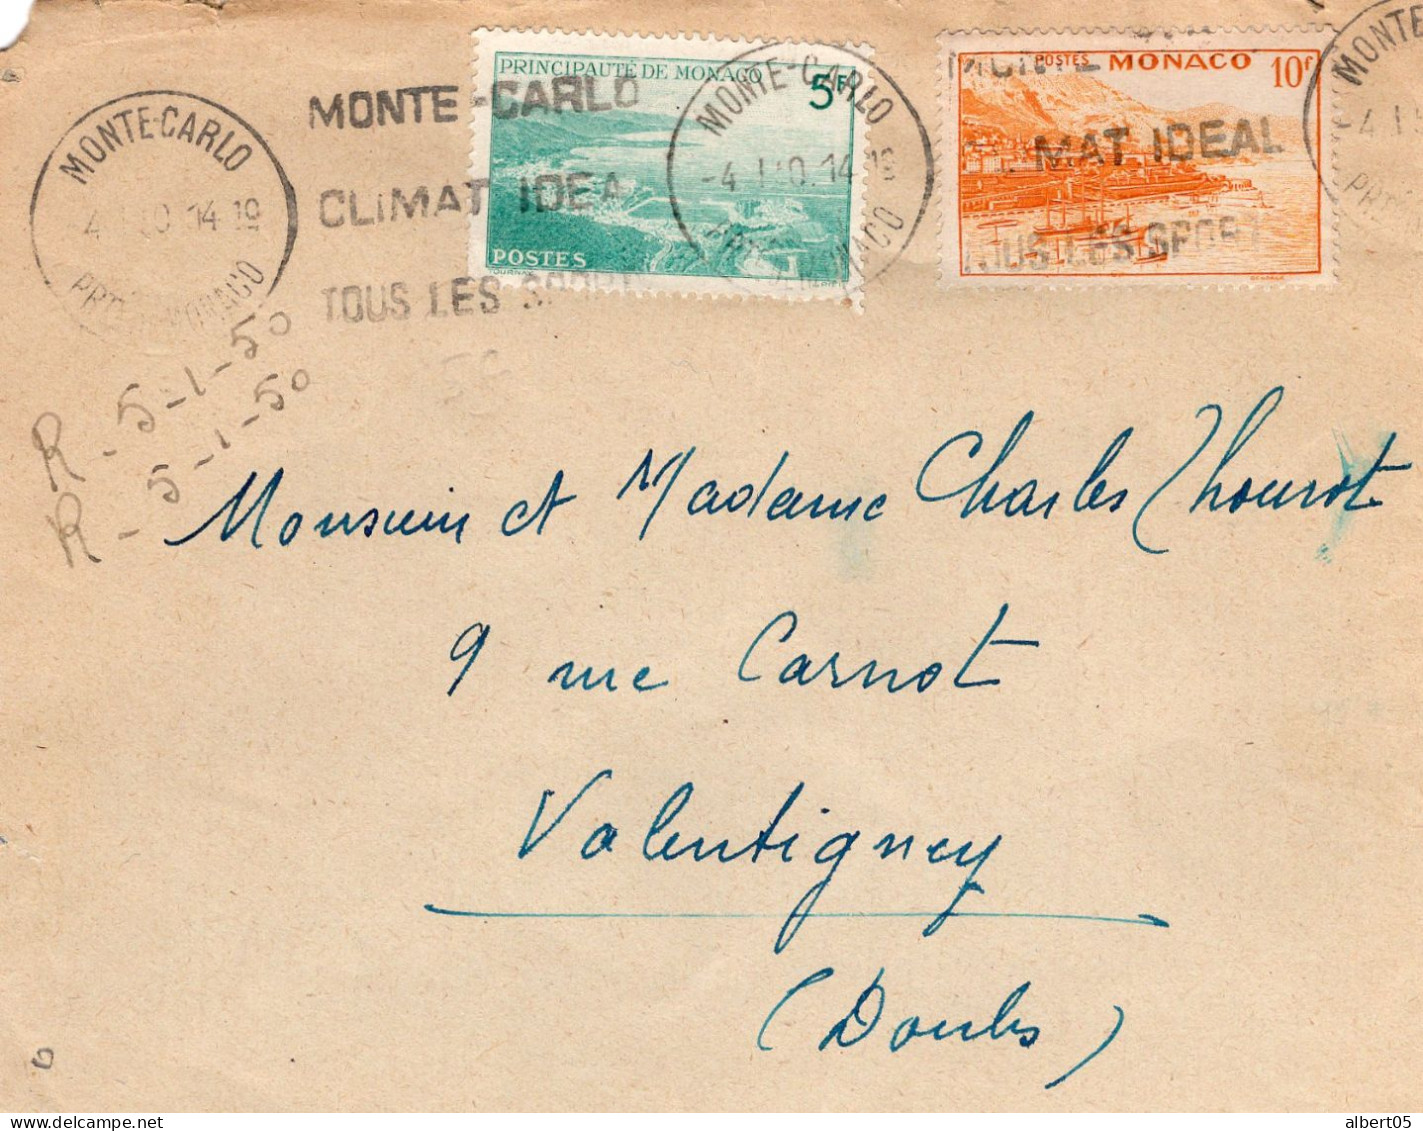 MONTE-CARLO
PRTÉ DE MONACO
MONTE-CARLO
CLIMAT IDEA
TOUS LES SPORT
PRINCIPAUTÉ DE MONACO
5F
POSTES
MONTE-CARLO
-4 1 50. 14 19
POSTES MONACO 10f
MAT IDEAL
TOUS LES SPORT
MONTE
R-5-1-50
R-5-1-50
Monsieur et Madame Charles Thourot
9 rue Carnot
Valentigney
(Doubs)
albert05